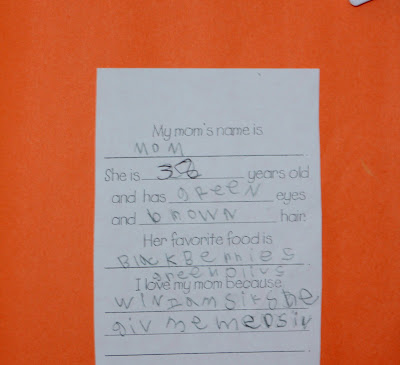 My mom's name is
MOM
She is 38 years old
and has green eyes
and brown hair.
Her favorite food is
BlacKBerries
greenolivs
I love my mom because
WINIamSikShe
giv Me MeDSiN